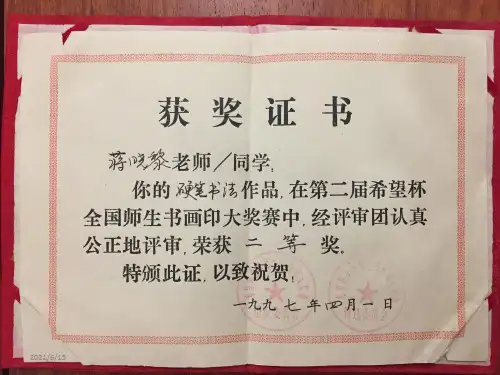 获奖证书
蒋晓黎老师／同学：
你的硬笔书法作品，在第二届希望杯
全国师生书画印大奖赛中，经评审团认真
公正地评审，荣获二等奖。
特颁此证，以致祝贺。
一九九七年四月一日
2021/5/13